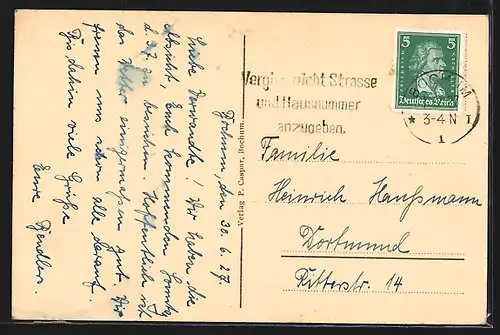 Bochum, den 30.6.27
Liebe Verwandte! Wir haben die
Absicht, Euch kommenden Sonntag
d. 3.7. zu besuchen. Hoffentlich ist
das Wetter einigermaßen gut. Wir
freuen uns schon alle darauf.
Bis dahin viele Grüße
Eure
Verlag P. Caspar, Bochum
Vergiss nicht Strasse
und Hausnummer
anzugeben.
5 5
Deutsches Reich
BOCHUM
★ 3-4 N I
1
Familie
Heinrich Hanssmann
Dortmund
Ritterstr. 14